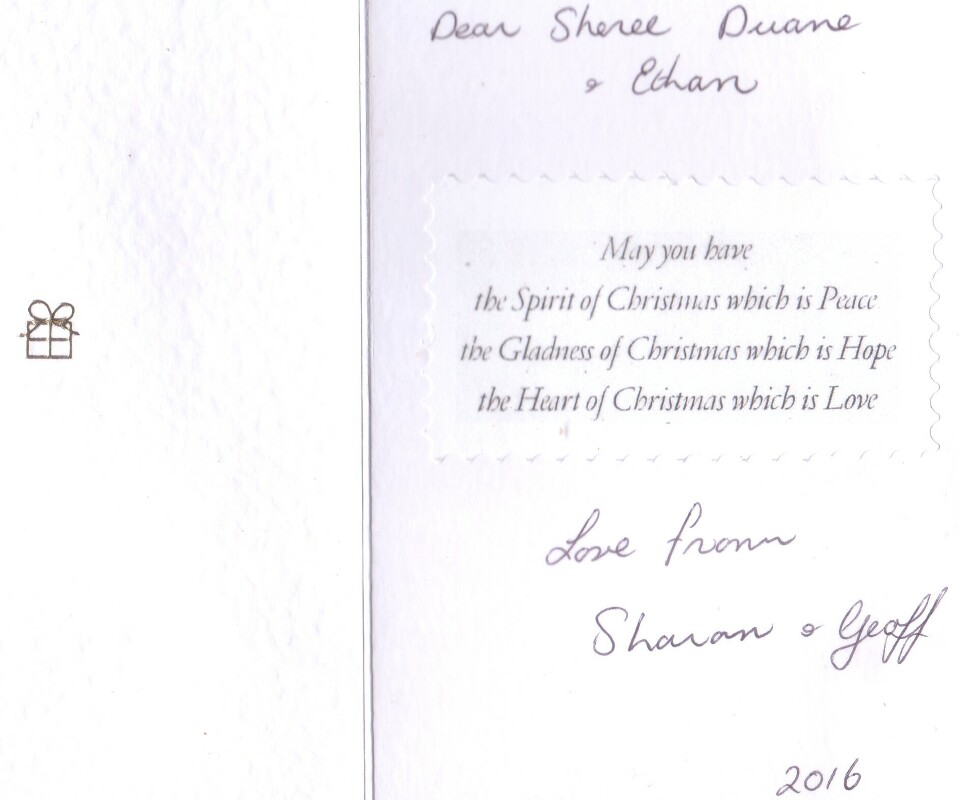 Dear Sheree Duane
& Ethan
May you have
the Spirit of Christmas which is Peace
the Gladness of Christmas which is Hope
the Heart of Christmas which is Love
Love from
Sharon & Geoff
2016